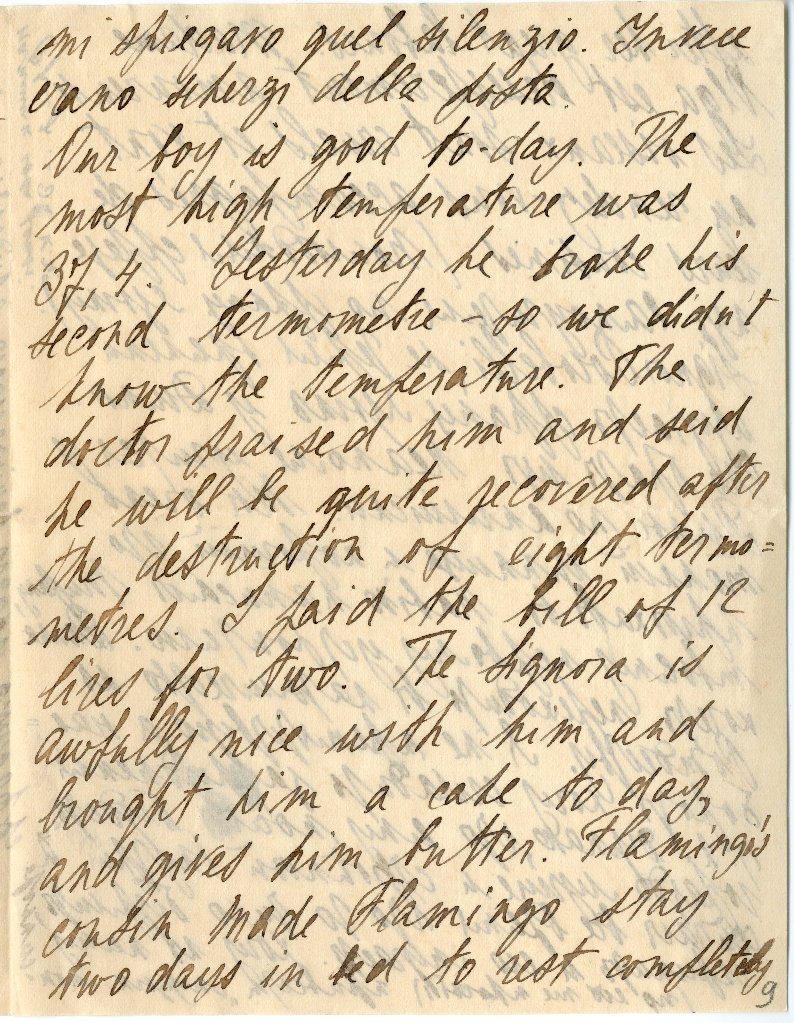 mi spiegavo quel silenzio. Invece
erano scherzi della posta.
Our boy is good to-day. The
most high temperature was
37,4. Yesterday he broke his
second termometre – so we didn't
know the temperature. The
doctor praised him and said
he will be quite recovered after
the destruction of eight termo=
metres. I paid the bill of 12
lires for two. The Signora is
awfully nice with him and
brought him a cake to day,
and gives him butter. Flamingo's
cousin made Flamingo stay
two days in bed to rest completely
9